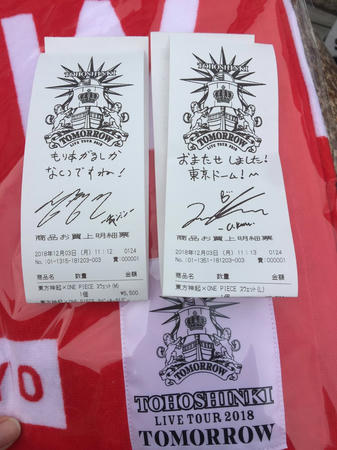 TOHOSHINKI
LIVE TOUR 2018
TOMORROW
もりあがるしか
ないですねぇ!
商品お買上明細票
2018年12月03日(月)11:12 0124
No.:01-1315-181203-003 責:000001
商品名 数量 金額
東方神起×ONE PIECE スウェット(M)
1個 ¥6,500
TOHOSHINKI
LIVE TOUR 2018
TOMORROW
おまたせしました!
東京ドーム!~
商品お買上明細票
2018年12月03日(月)11:13 0124
No.:01-1351-181203-003 責:000001
商品名 数量 金額
東方神起×ONE PIECE スウェット(L)
1個
TOHOSHINKI
LIVE TOUR 2018
TOMORROW
YO